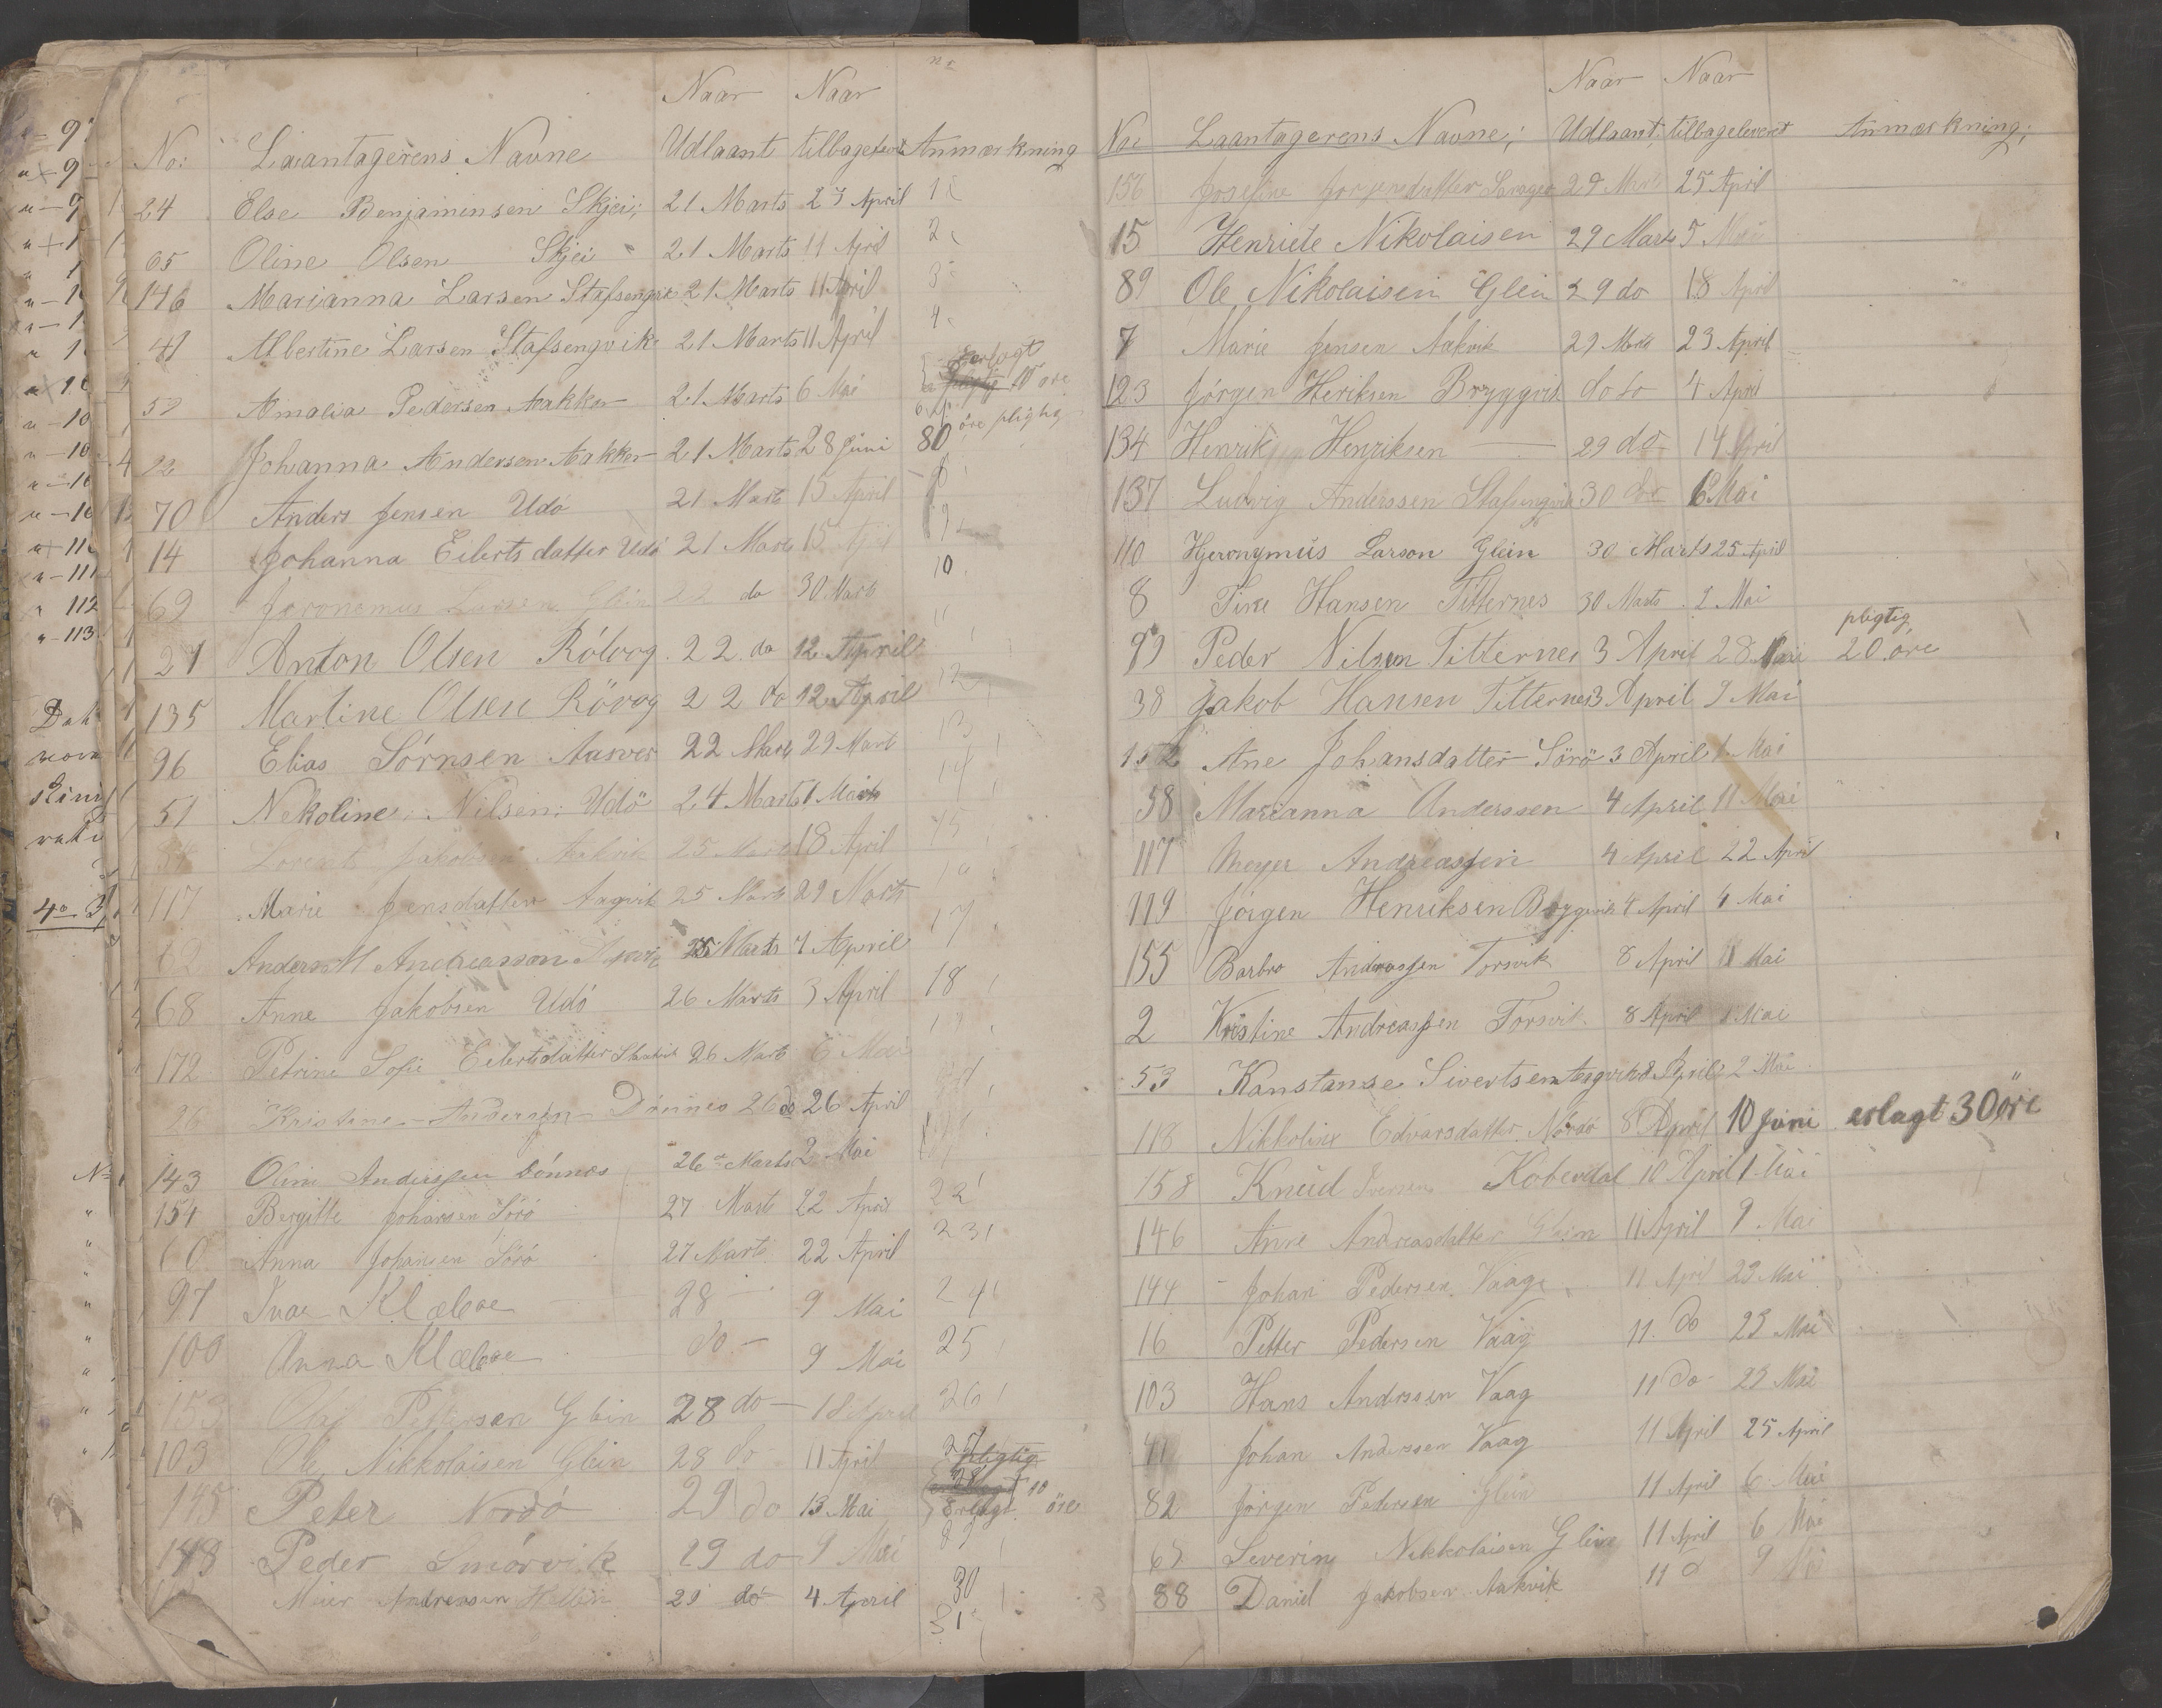 Naar Naar
No: Laantagerens Navne Udlaant tilbagelev Anmærkning
24 Else Benjaminsen Skjei; 21 Marts 27 April 1
65 Oline Olsen Skjei 21 Marts 11 April 2
146 Marianna Larsen Stafsengvik 21 Marts 11 April 3
41 Albertine Larsen Stafsengvik 21 Marts 11 April 4
52 Amalia Pedersen Aakker 21 Marts 6 Mai 5 erlagt 10 øre
22 Johanna Andersen Aakker 21 Marts 28 Juni 80 øre pligtig
70 Anders Jensen Udö 21 Marts 15 April 8
14 Johanna Eilertsdatter Udö 21 Marts 15 April 9
69 Jeronemus Larsen Glein 22 do 30 Marts 10
21 Anton Olsen Rölvog 22 do 12 April 11
135 Martine Olsen Rövog 22 do 12 April 12
96 Elias Sörnsen Aasver 22 Marts 29 Mart 13
51 Nekoline Nilsen Udö 24 Marts 1 14
Lorents Jakobsen Aakvik 25 Marts 18 April 15
117 Marie Jensdatter Aagvik 25 Marts 29 Marts 16
62 Anders M Andreassen 25 Marts 4 April 17
68 Anne Jakobsen Udö 26 Marts 3 April 18
172 Petrine Sofie Eilertsdatter 26 Marts 6 Mai 19
26 Kristine Andersen Dönnes 26 do 26 April
143 Oline Anderssen Dönnes 26 Marts 2 Mai
154 Bergitte Johansen Sörö 27 Marts 22 April 22
60 Anna Johansen Sörö 27 Marts 22 April 23
97 Ivar Klæboe 28 9 Mai 24
100 Anna Klæboe do - 9 Mai 25
153 Olaf Pettersen Glein 28 do 18 April 26
103 Ole Nikkolaisen Glein 28 do 11 April 27 pligtig
145 Peter Nordö 29 do 13 Mai 28 Erlagt 10 öre
148 Peder Smörvik 29 do 9 Mai 29
Andreassen 29 do 4 April 30
31
Naar Naar
No: Laantagerens Navne; Udlaant; tilbageleveret Anmærkning;
156 Josefine Jorgensdatter 29 Marts 25 April
15 Henriete Nikolaisen 29 Marts 5 Mai
89 Ole Nikolaisen Glein 29 do 18 April
7 Marie Jensen Aakvik 29 Marts 23 April
123 Jörgen Heriksen Bryggvik do do 4 April
134 Henrik Henriksen 29 do 14 April
137 Ludvig Anderssen Stafsengvik 30 do 6 Mai
110 Hjeronymus Larson Glein 30 Marts 25 April
8 Tine Hansen Titternes 30 Marts 2 Mai
99 Peder Nilsen Titternes 3 April 28 Mai pligtig 20 øre
38 Jakob Hansen Titternes 3 April 9 Mai
152 Ane Johansdatter Sörö 3 April 1 Mai
58 Marianna Anderssen 4 April 11 Mai
117 Meyer Andreassen 4 April 22 April
119 Jörgen Henriksen Bryggvik 4 April 4 Mai
155 Barbro Andreassen Torsvik 8 April 1 Mai
2 Kristine Andreassen Torsvik 8 April 1 Mai
53 Kanstanse Sivertsen Aagvik 8 April 2 Mai
118 Nikkoline Edvarsdatter Nordö 8 April 10 Juni erlagt 30 öre
158 Kneid Iversen Kobberdal 10 April 1 Mai
146 Anne Andreasdatter Glein 11 April 9 Mai
144 Johan Pedersen Vaage 11 April 23 Mai
16 Petter Pedersen Vaag 11 do 23 Mai
103 Hans Anderssen Vaag 11 do 23 Mai
41 Johan Anderssen Vaag 11 April 25 April
82 Jörgen Pedersen Glein 11 April 6 Mai
65 Severin Nikkolaisen Glein 11 April 6 Mai
88 Daniel Jakobsen Aakvik 11 d 9 Mai